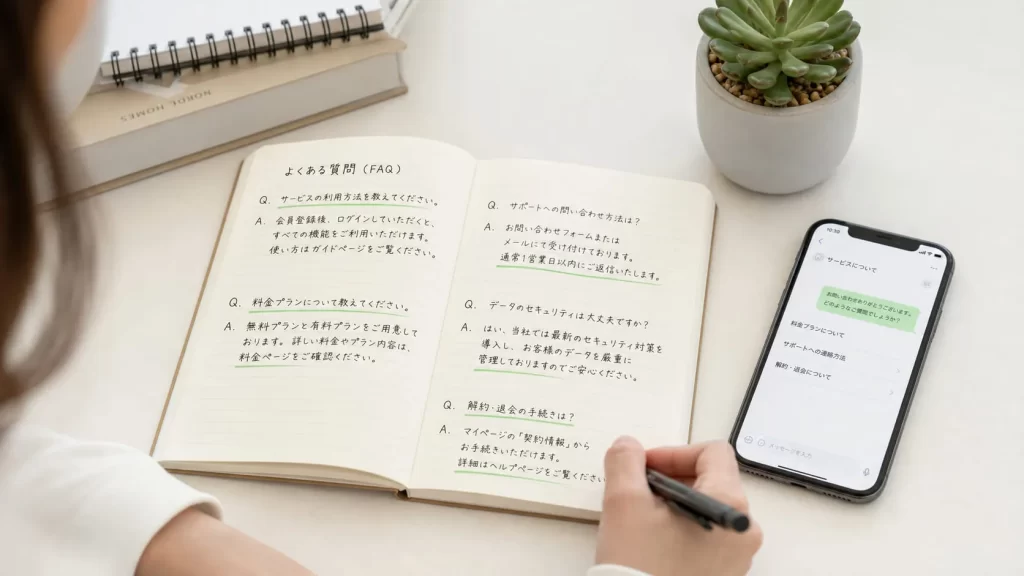 NORDE HOMES
よくある質問（FAQ）
Q. サービスの利用方法を教えてください。
A. 会員登録後、ログインしていただくと、
すべての機能をご利用いただけます。
使い方はガイドページをご覧ください。
Q. 料金プランについて教えてください。
A. 無料プランと有料プランをご用意して
おります。詳しい料金やプラン内容は、
料金ページをご確認ください。
Q. サポートへの問い合わせ方法は？
A. お問い合わせフォームまたは
メールにて受け付けております。
通常1営業日以内にご返信いたします。
Q. データのセキュリティは大丈夫ですか？
A. はい、当社では最新のセキュリティ対策を
導入し、お客様のデータを厳重に
管理しておりますのでご安心ください。
Q. 解約・退会の手続きは？
A. マイページの「契約情報」から
お手続きいただけます。
詳細はヘルプページをご覧ください
10:50
サービスについて
お問い合わせありがとうございます。
どのようなご質問でしょうか？
料金プランについて
サポートへの連絡方法
解約・退会について
メッセージを入力